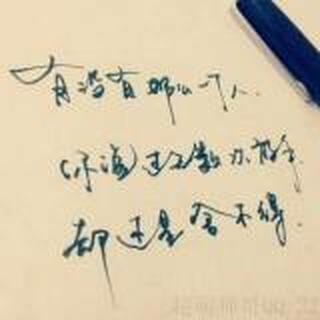 有没有那么一个人.
你说过无数次放手.
却还是舍不得.